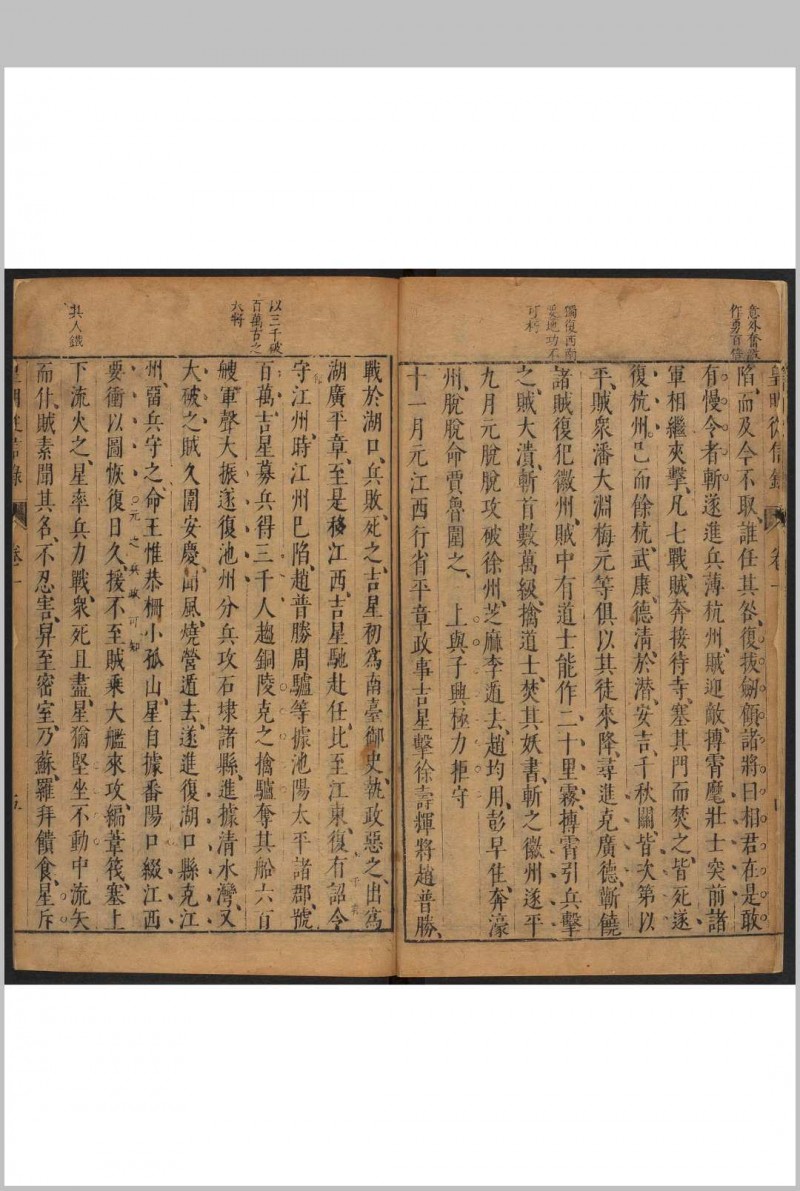 皇明從信錄 卷一 四
意外奮激
作勇百倍
陷、而及今不取、誰任其咎、復拔劒顧諸將曰、相君在是、敢
有慢令者斬、遂進兵薄杭州、賊迎敵、摶霄麾壯士突前、諸
軍相繼夾擊、凡七戰、賊奔接待寺、塞其門而焚之、皆死、遂
復杭州、已而餘杭、武康、德清、於潛、安吉、千秋關、皆次第以
平、賊衆潘大淵梅元等俱以其徒來降、尋進克廣德、蘄饒
獨復西南
要地功不
可朽
諸賊復犯徽州、賊中有道士能作二十里霧、摶霄引兵擊
之、賊大潰、斬首數萬級、擒道士、焚其妖書、斬之、徽州遂平
九月元脫脫攻破徐州、芝麻李遁去、趙均用、彭早住、奔濠
州、脫脫命賈魯圍之、 上與子興極力拒守
十一月元江西行省平章政事吉星擊徐壽輝將趙普勝、
戰於湖口、兵敗、死之、吉星初爲南臺御史、執政惡之、出爲
湖廣平章、至是移江西、吉星馳赴任、比至江東、復有詔令
守江州、時江州已陷、趙普勝周驢等據池陽太平諸郡、號
以三千破
百萬古之
大將
百萬、吉星募兵得三千人、趨銅陵克之、擒驢奪其船六百
艘、軍聲大振、遂復池州、分兵攻石埭諸縣、進據清水灣、又
大破之、賊久圍安慶、聞風燒營遁去、遂進復湖口縣、克江
州、留兵守之、命王惟恭柵小孤山、星自據番陽口、綴江西
要衝、以圖恢復、日久、援不至、賊乘大艦來攻、編葦筏、塞上
元之兵政可知
下流火之、星率兵力戰、衆死且盡、星猶堅坐不動、中流矢
其人鐵
而仆、賊素聞其名、不忍害、舁至密室、乃蘇、羅拜饋食、星斥
皇明從信錄 卷一 五